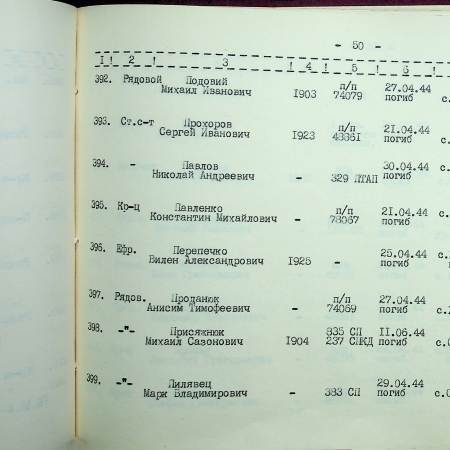 - 50 -
1 ! 2 ! 3 ! 4 ! 5 ! 6 !
392. Рядовой Подовий п/п 27.04.44
Михаил Иванович 1903 74079 погиб с.
393. Ст.с-т Прохоров п/п 21.04.44
Сергей Иванович 1923 48861 погиб с.
394. - Павлов 30.04.44 с.
Николай Андреевич - 329 ПТАП погиб
395. Кр-ц Павленко п/п 21.04.44 с.
Константин Михайлович - 78067 погиб
396. Ефр. Перепечко 25.04.44 с.
Вилен Александрович 1925 - погиб
397. Рядов. Проданюк п/п 27.04.44
Анисим Тимофеевич - 74059 погиб с.
398. -"- Присяжнюк 835 СП 11.06.44
Михаил Сазонович 1904 237 СПКД погиб с.
399. -"- Пилявец 29.04.44
Марк Владимирович - 383 СП погиб с.